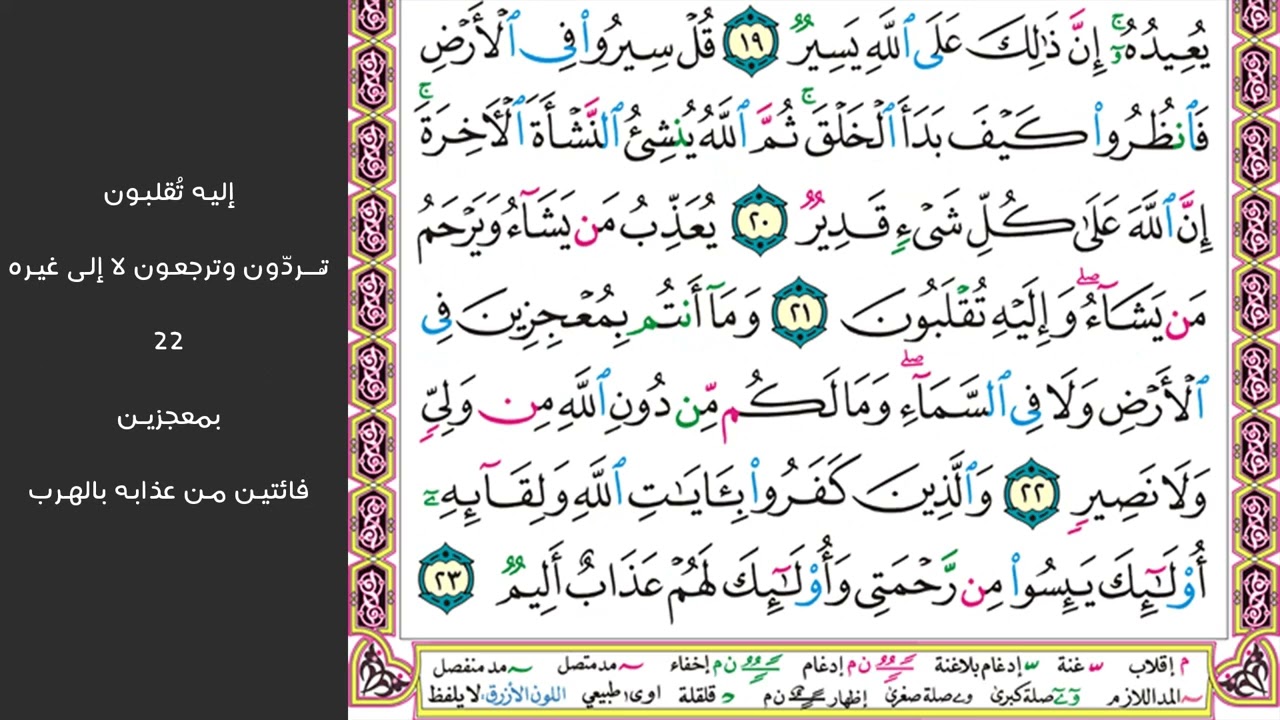 يُعِيدُهُۥٓ ۚ إِنَّ ذَٰلِكَ عَلَى ٱللَّهِ يَسِيرٌ ١٩ قُلْ سِيرُوا۟ فِى ٱلْأَرْضِ
فَٱنظُرُوا۟ كَيْفَ بَدَأَ ٱلْخَلْقَ ۚ ثُمَّ ٱللَّهُ يُنشِئُ ٱلنَّشْأَةَ ٱلْـَٔاخِرَةَ ۚ
إِنَّ ٱللَّهَ عَلَىٰ كُلِّ شَىْءٍ قَدِيرٌ ٢٠ يُعَذِّبُ مَن يَشَآءُ وَيَرْحَمُ
مَن يَشَآءُ ۖ وَإِلَيْهِ تُقْلَبُونَ ٢١ وَمَآ أَنتُم بِمُعْجِزِينَ فِى
ٱلْأَرْضِ وَلَا فِى ٱلسَّمَآءِ ۖ وَمَا لَكُم مِّن دُونِ ٱللَّهِ مِن وَلِىٍّ
وَلَا نَصِيرٍ ٢٢ وَٱلَّذِينَ كَفَرُوا۟ بِـَٔايَٰتِ ٱللَّهِ وَلِقَآئِهِۦٓ
أُو۟لَٰٓئِكَ يَئِسُوا۟ مِن رَّحْمَتِى وَأُو۟لَٰٓئِكَ لَهُمْ عَذَابٌ أَلِيمٌ ٢٣
م إقلاب غنة إدغام بلاغنة ن م إدغام ن م إخفاء مد متصل مد منفصل
المد اللازم صلة كبرى صلة صغرى إظهار ن م قلقلة اوى طبيعي اللون الأزرق: لا يلفظ
إليه تُقلبون
تـردّون وترجعون لا إلى غيره
22
بمعجزين
فائتين من عذابه بالهرب